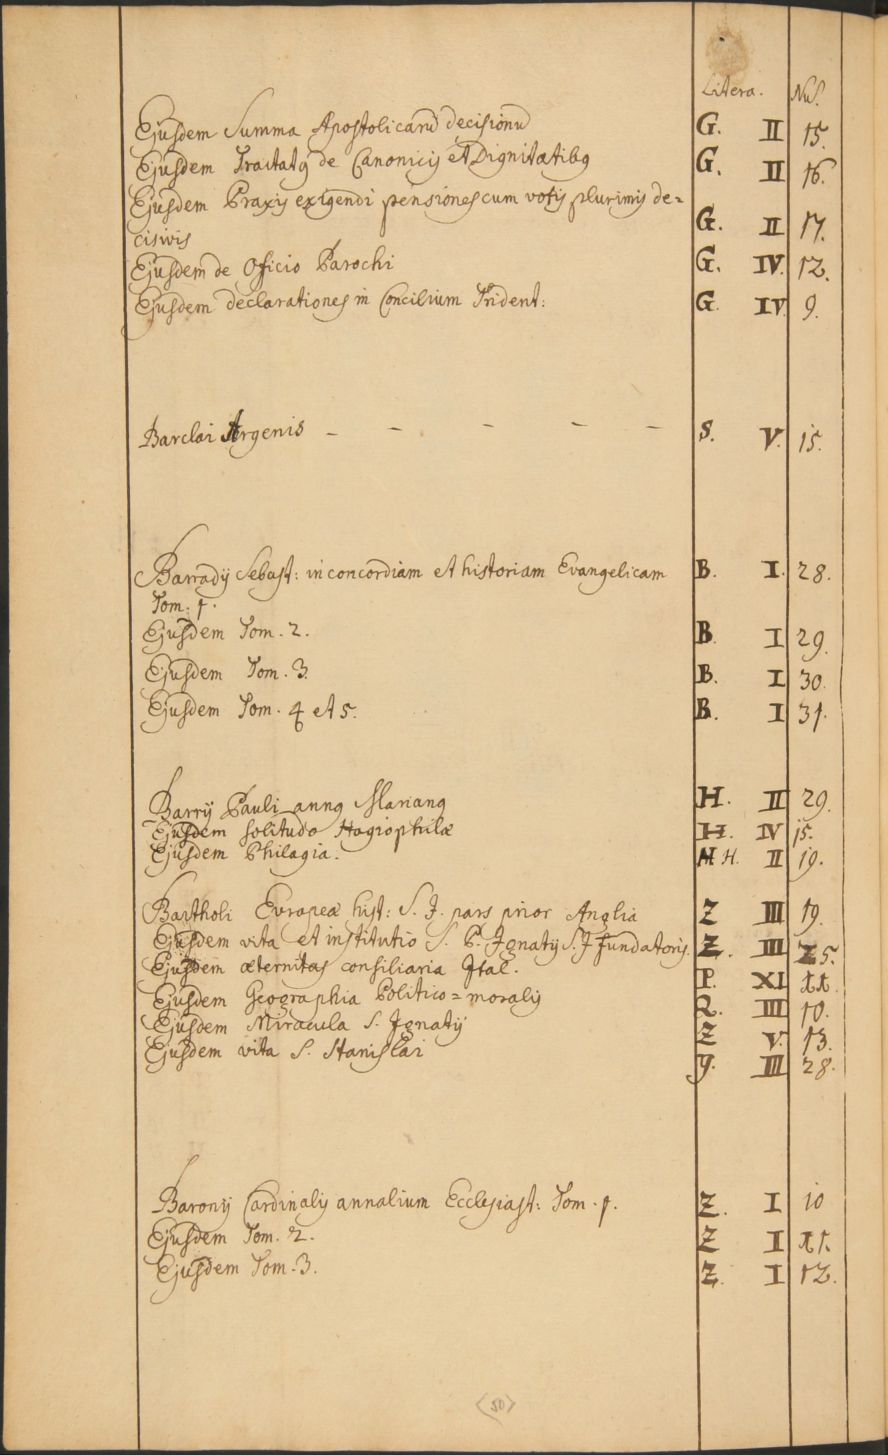 Litera. Nus.
Ejusdem Summa Apostolicarū decisionū G. II 15.
Ejusdem Tractatq de Canonicis et Dignitatibq G. II 16.
Ejusdem Praxis exigendi pensiones cum votis plurimis de=
cisivis G. II 17.
Ejusdem de Oficio Parochi G. IV. 12.
Ejusdem declarationes in Concilium Trident: G. IV. 9.
Barclai Argenis - - - - - S. V. 15.
Barradij Sebast: in concordiam et historiam Evangelicam B. I. 28.
Tom. 1.
Ejusdem Tom. 2. B. I 29.
Ejusdem Tom. 3. B. I 30.
Ejusdem Tom. 4 et 5. B. I 31.
Barrij Pauli annq Marianq H. II 29.
Ejusdem Solitudo Hagiophilæ H. IV 15.
Ejusdem Philagia. H. II 19.
Bartholi Europeæ hist: S. J. pars prior Anglia Z III 19.
Ejusdem vita et institutio S. P. Ignatij S. J fundatoris. Z. III 25.
Ejusdem æternitas consiliaria Ital. P. XI 11.
Ejusdem Geographia Politico=moralis Q. III 10.
Ejusdem Miracula S. Ignatij Z V. 13.
Ejusdem vita S. Stanislai Y. III 28.
Baronij Cardinalis annalium Ecclesiast: Tom. 1. Z. I 10
Ejusdem Tom. 2. Z I 11.
Ejusdem Tom. 3. Z. I 12.
<50>